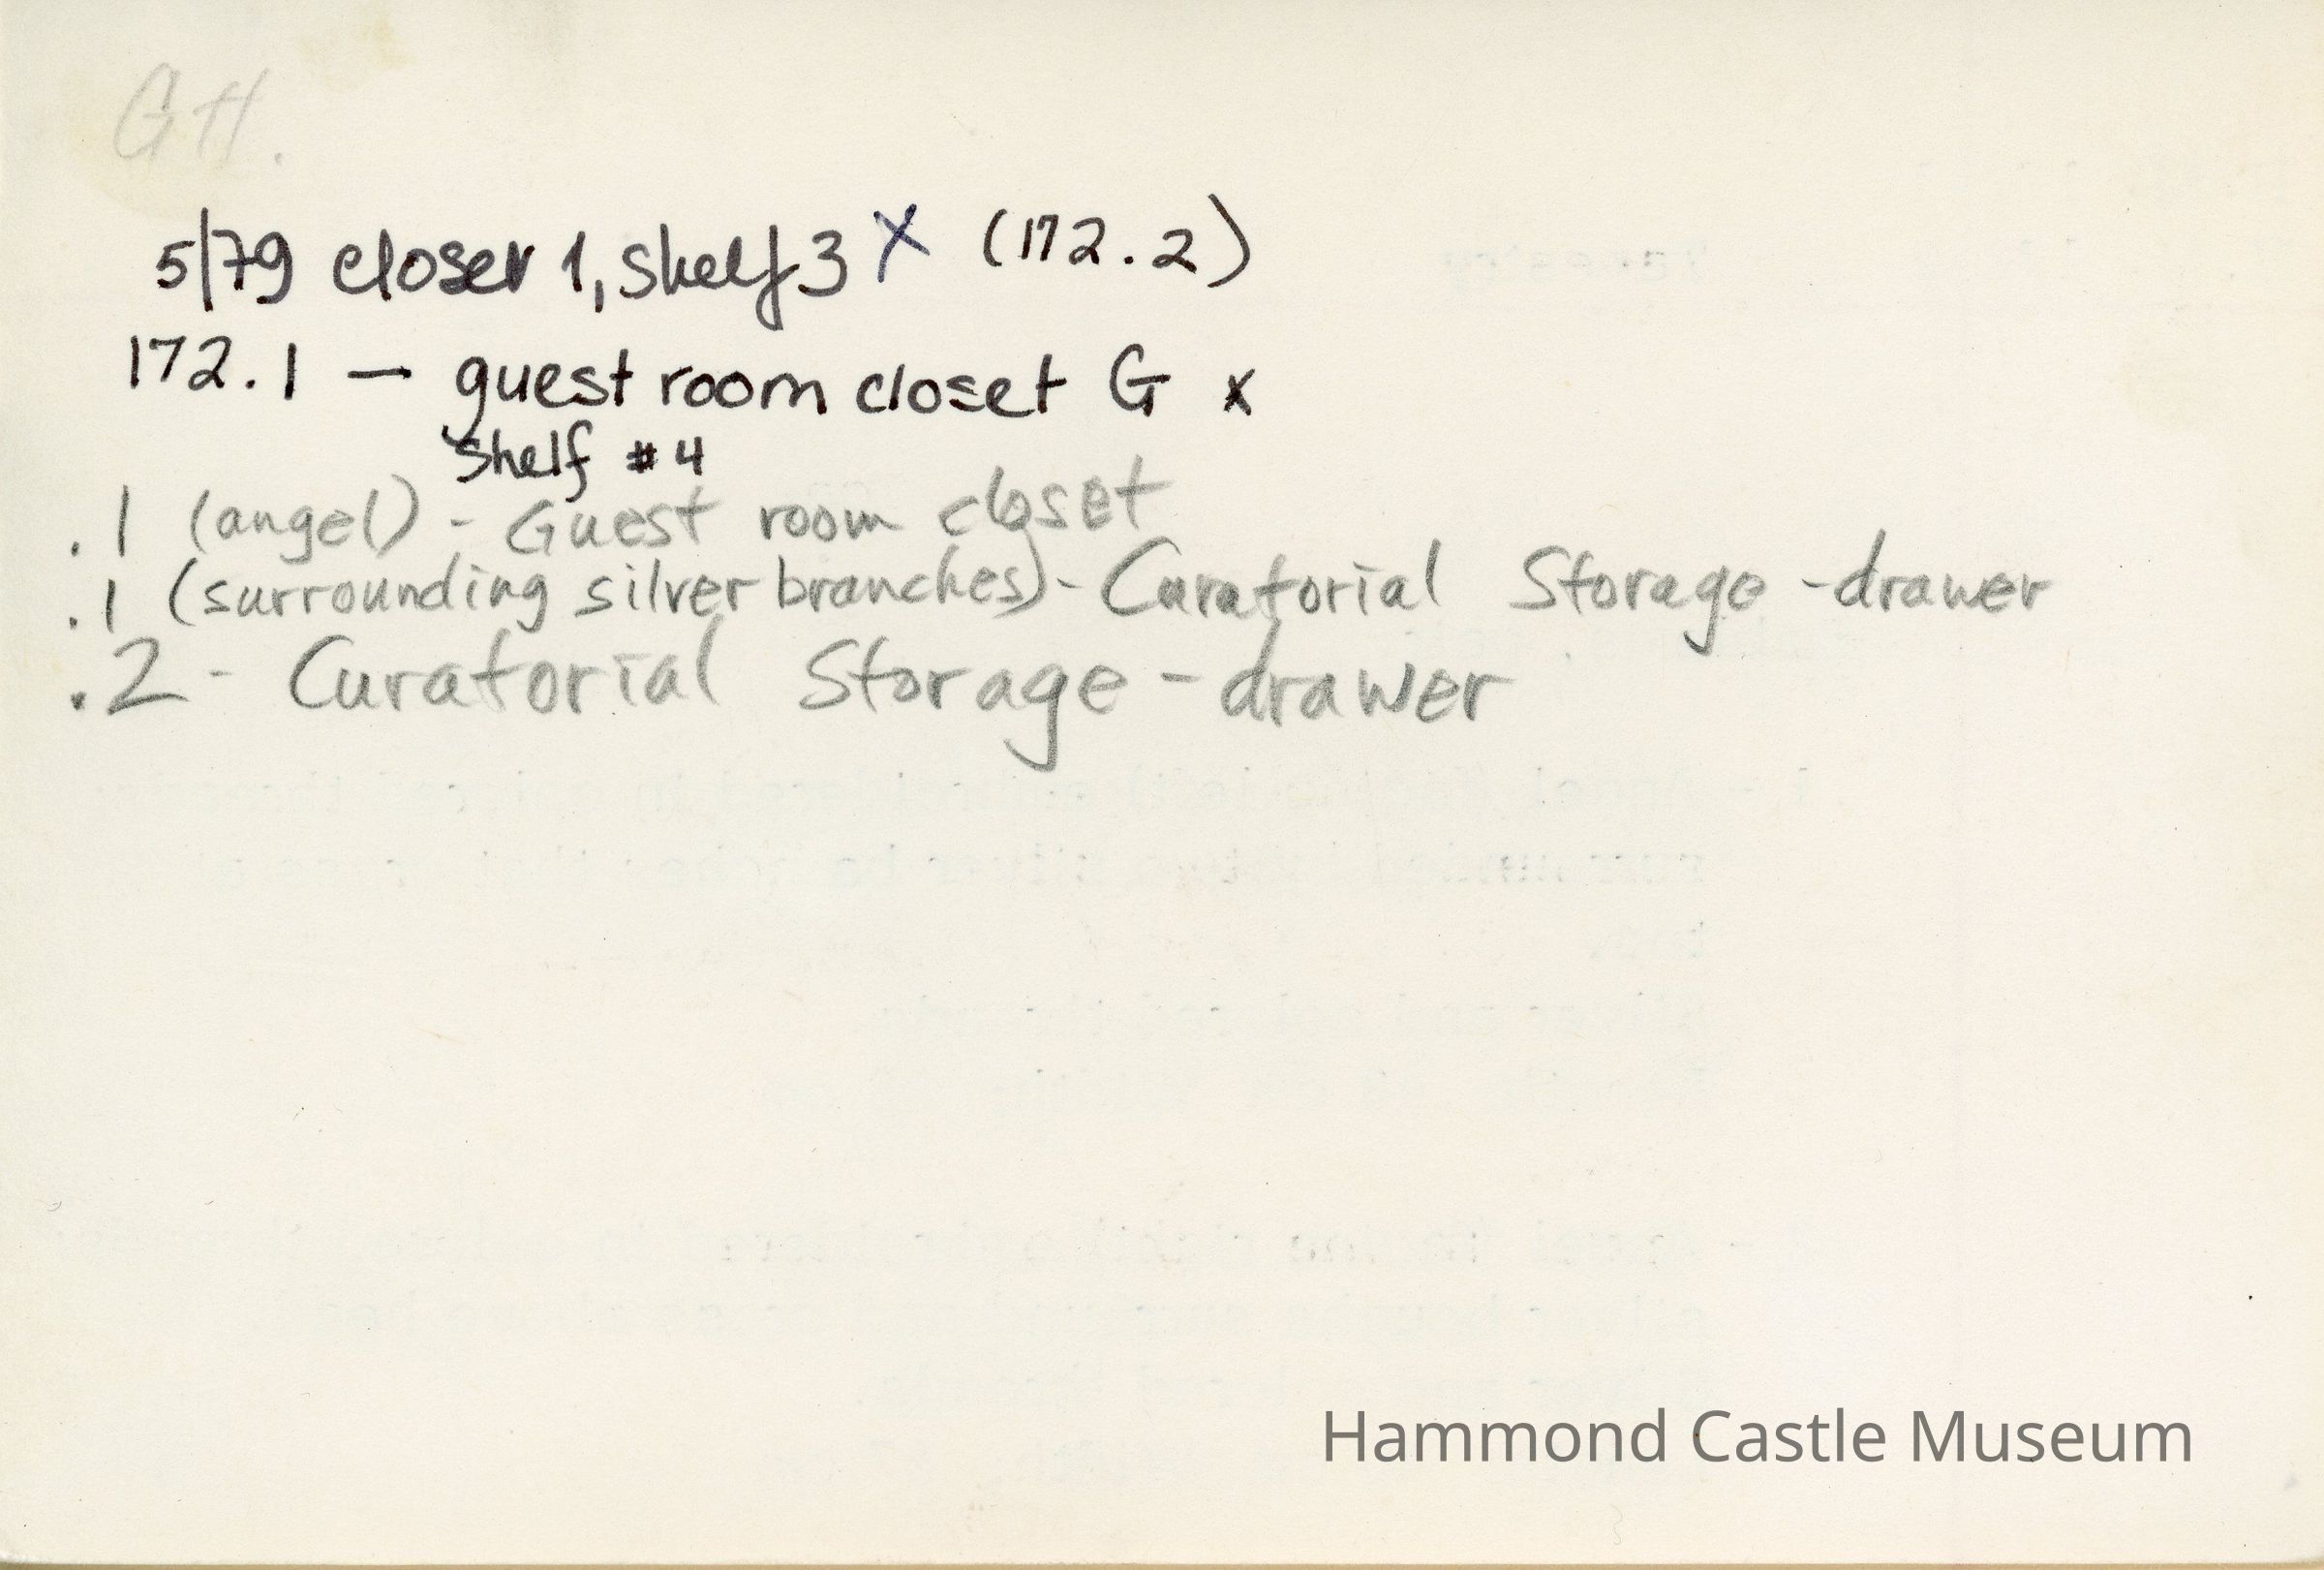 GH.
5/79 closer 1, shelf 3 X (172.2)
172.1 — guest room closet G x
Shelf #4
.1 (angel) - Guest room closet
.1 (surrounding silver branches) - Curatorial Storage - drawer
.2 - Curatorial Storage - drawer
Hammond Castle Museum